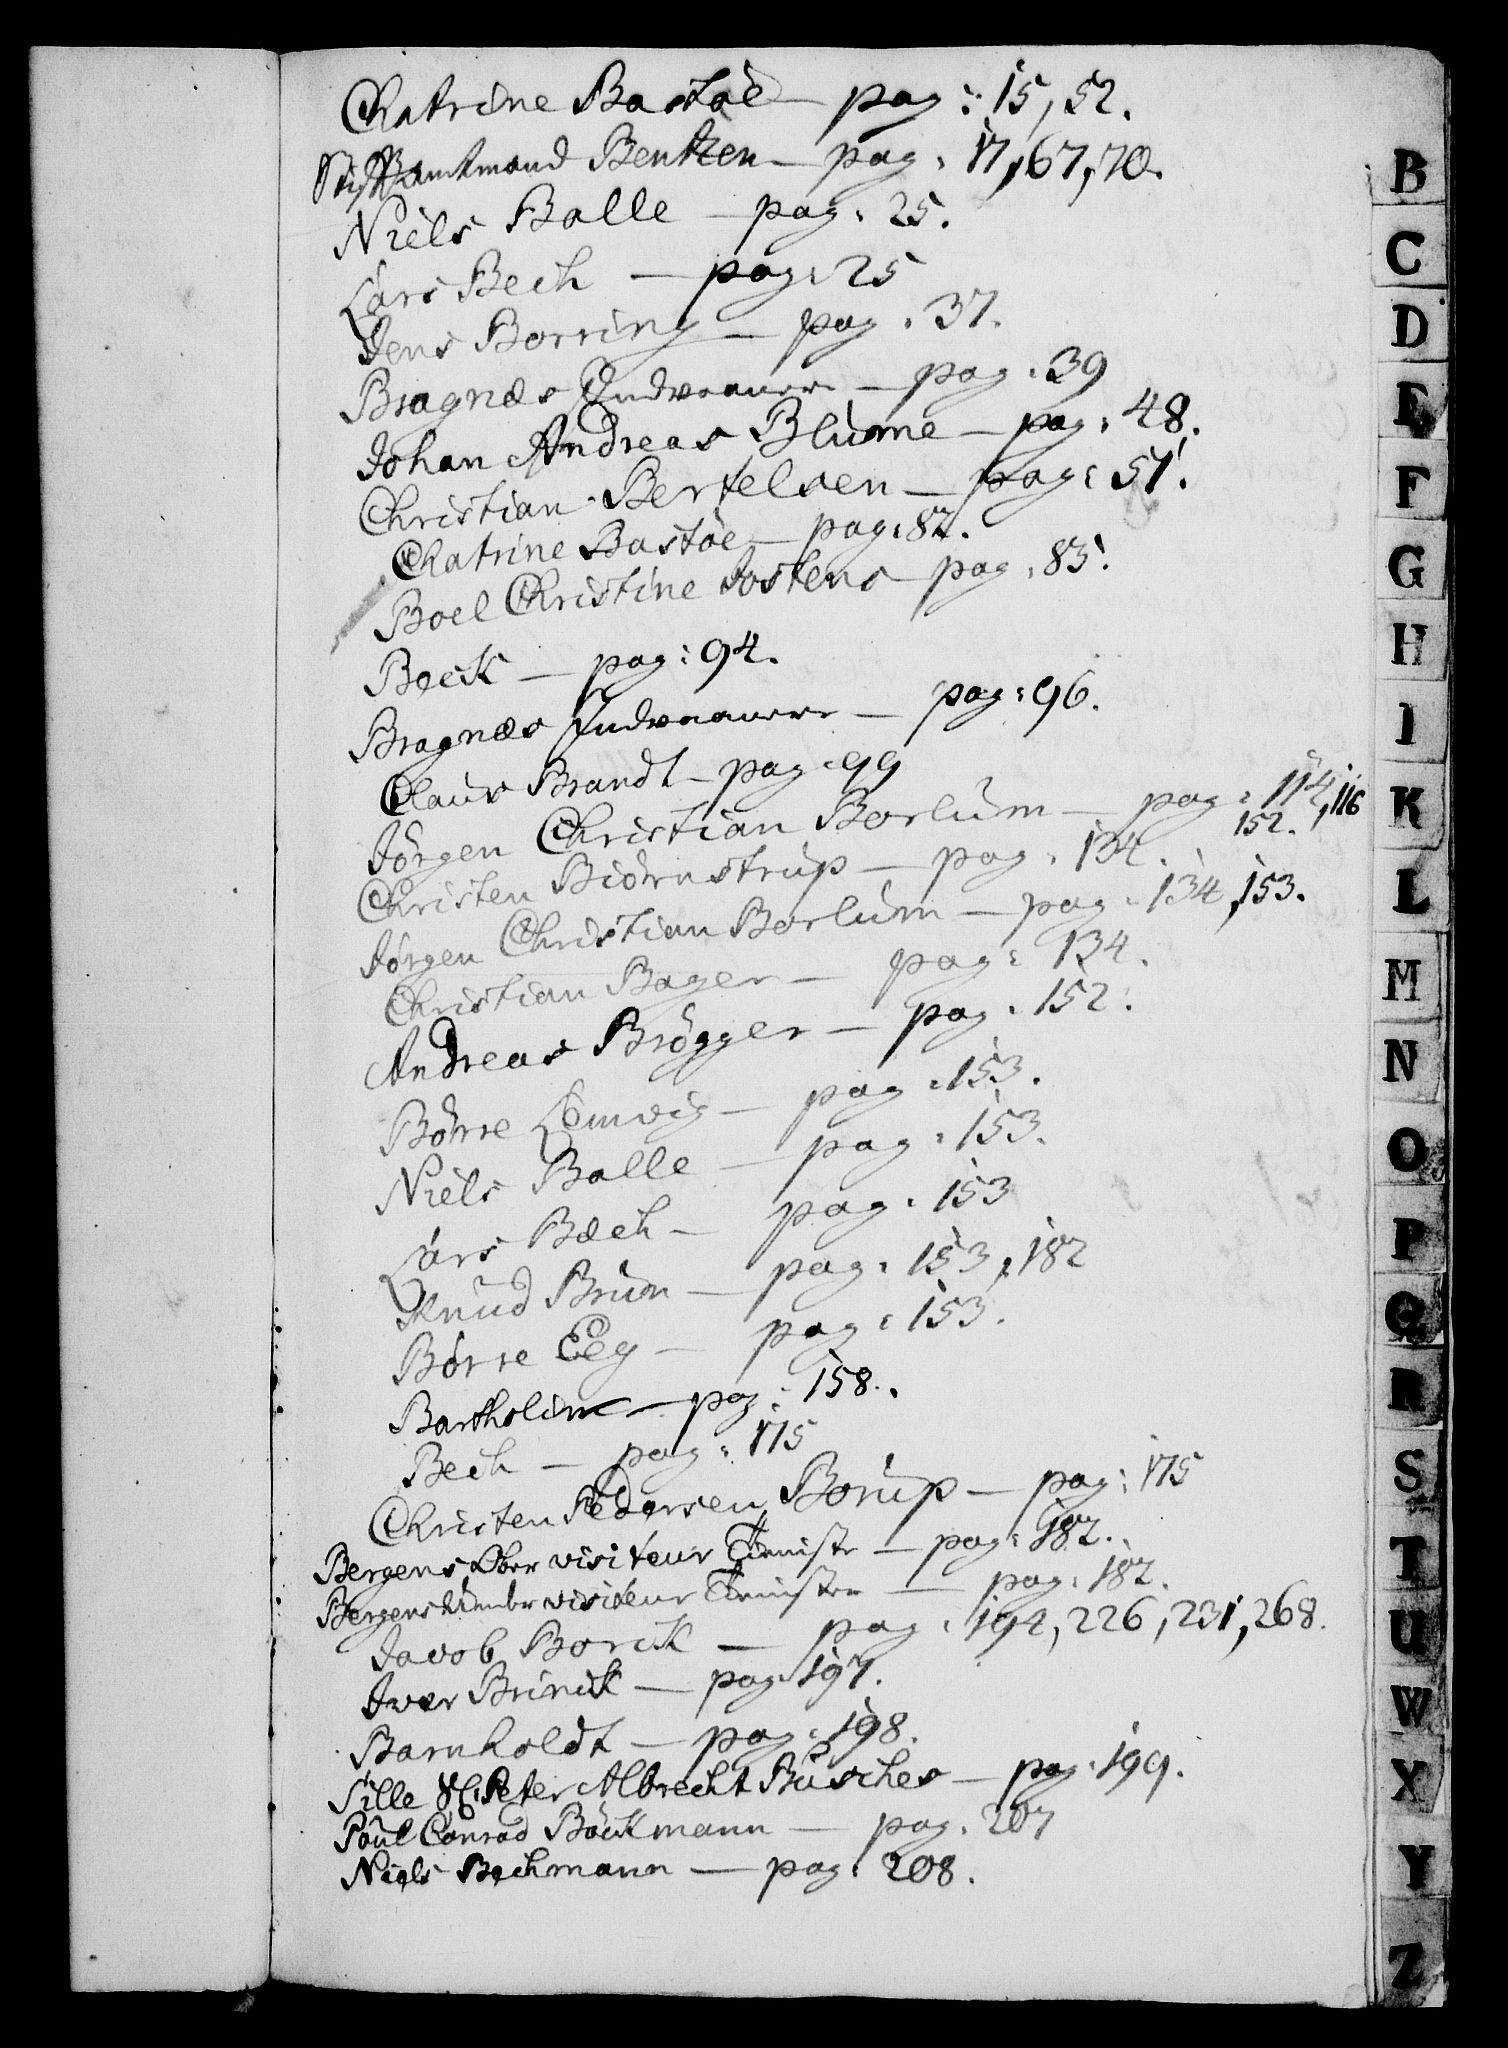 Chatrine Bastöe — pag: 15, 52.
Stiftbamtmand Bentzen — pag: 17, 67, 70.
Niels Balle — pag: 25.
Lars Bech — pag: 25
Jens Borring — pag: 37.
Bragnæs Indvaanere — pag: 39
Johan Andreas Blume — pag: 48.
Christian Bertelsen — pag: 51.
Chatrine Bastöe — pag: 82.
Boel Christine Jostens — pag: 83.
Beck — pag: 94.
Bragnæs Indvaanere — pag: 96.
Claus Brandt — pag: 99
Jörgen Christian Borlum — pag: 114, 116
152.
Christen Biörnstrup — pag: 134.
Jörgen Christian Borlum — pag: 134, 153.
Christian Bager — pag: 134.
Andreas Brögger — pag: 152.
Börre Lemvig — pag: 153.
Niels Balle — pag: 153.
Lars Bæch — pag: 153
Knud Brun — pag: 153, 182
Börre Eeg — pag: 153.
Bartholin — pag: 158.
Bech — pag: 175
Christen Pedersen Borup — pag: 175
Bergens Ober visiteur — pag: 182.
Bergens Under visiteur — pag: 182.
Jacob Borck — pag: 194, 226, 231, 268.
Iver Brinck — pag: 197.
Barnholdt — pag: 198.
Sille Sl: Peter Albrecht Busches — pag: 199.
Poul Conrad Böckmann — pag: 207
Niels Bechmann — pag: 208.
B
C
D
E
F
G
H
I
K
L
M
N
O
P
Q
R
S
T
U
W
X
Y
Z